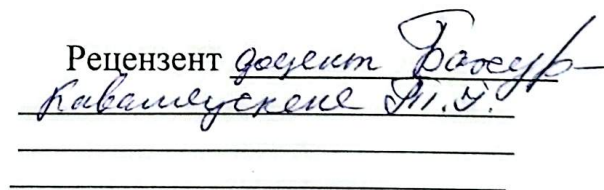 Рецензент доцент Бажур-
Кавалеускене Т.Г.